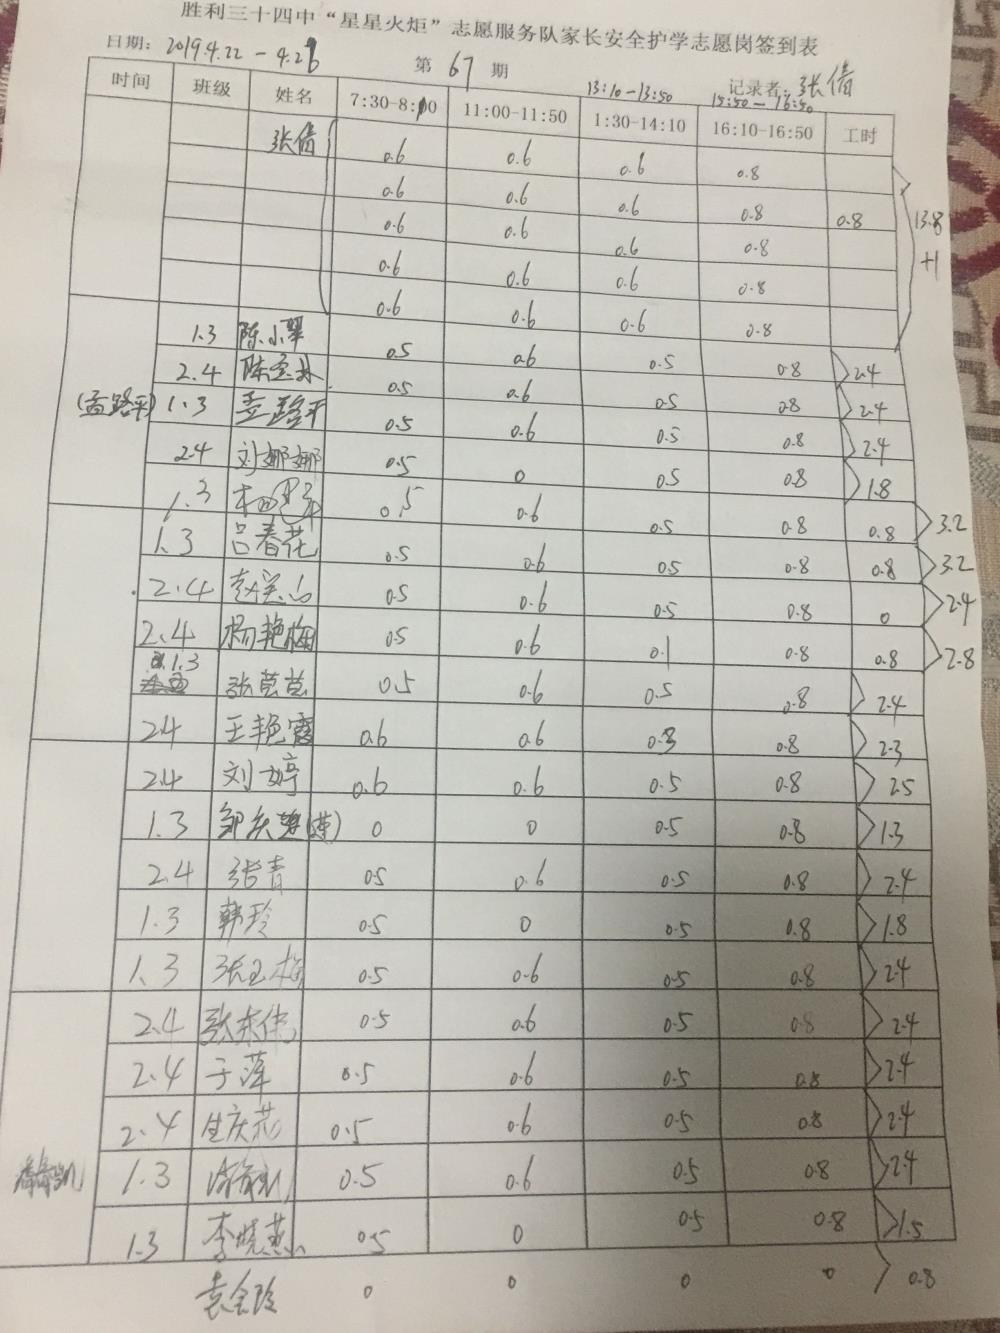 胜利三十四中“星星火炬”志愿服务队家长安全护学志愿岗签到表
日期: 2019.4.22 — 4.26 第 67 期 记录者: 张倩
13:10-13:50 15:50-16:50
时间 班级 姓名 7:30-8:10 11:00-11:50 1:30-14:10 16:10-16:50 工时
张倩 0.6 0.6 0.6 0.8
0.6 0.6 0.6 0.8 0.8 13.8
0.6 0.6 0.6 0.8 +1
0.6 0.6 0.6 0.8
0.6 0.6 0.6 0.8
1.3 陈小翠 0.5 0.6 0.5 0.8 2.4
2.4 0.5 0.6 0.5 0.8 2.4
(孟路平) 1.3 孟路平 0.5 0.6 0.5 0.8 2.4
2.4 刘娜娜 0.5 0 0.5 0.8 1.8
1.3 0.5 0.6 0.5 0.8 0.8 3.2
1.3 吕春花 0.5 0.6 0.5 0.8 0.8 3.2
2.4 0.5 0.6 0.5 0.8 0 2.4
2.4 杨艳梅 0.5 0.6 0.1 0.8 0.8 2.8
1.3 张苣苣 0.5 0.6 0.5 0.8 2.4
2.4 王艳霞 0.6 0.6 0.3 0.8 2.3
2.4 刘婷 0.6 0.6 0.5 0.8 2.5
1.3 0 0 0.5 0.8 1.3
2.4 张青 0.5 0.6 0.5 0.8 2.4
1.3 韩玲 0.5 0 0.5 0.8 1.8
1.3 张玉梅 0.5 0.6 0.5 0.8 2.4
2.4 张东伟 0.5 0.6 0.5 0.8 2.4
2.4 于萍 0.5 0.6 0.5 0.8 2.4
2.4 生庆花 0.5 0.6 0.5 0.8 2.4
1.3 0.5 0.6 0.5 0.8 2.4
1.3 李晓燕 0.5 0 0.5 0.8 1.5
袁金玲 0 0 0 0 0.8